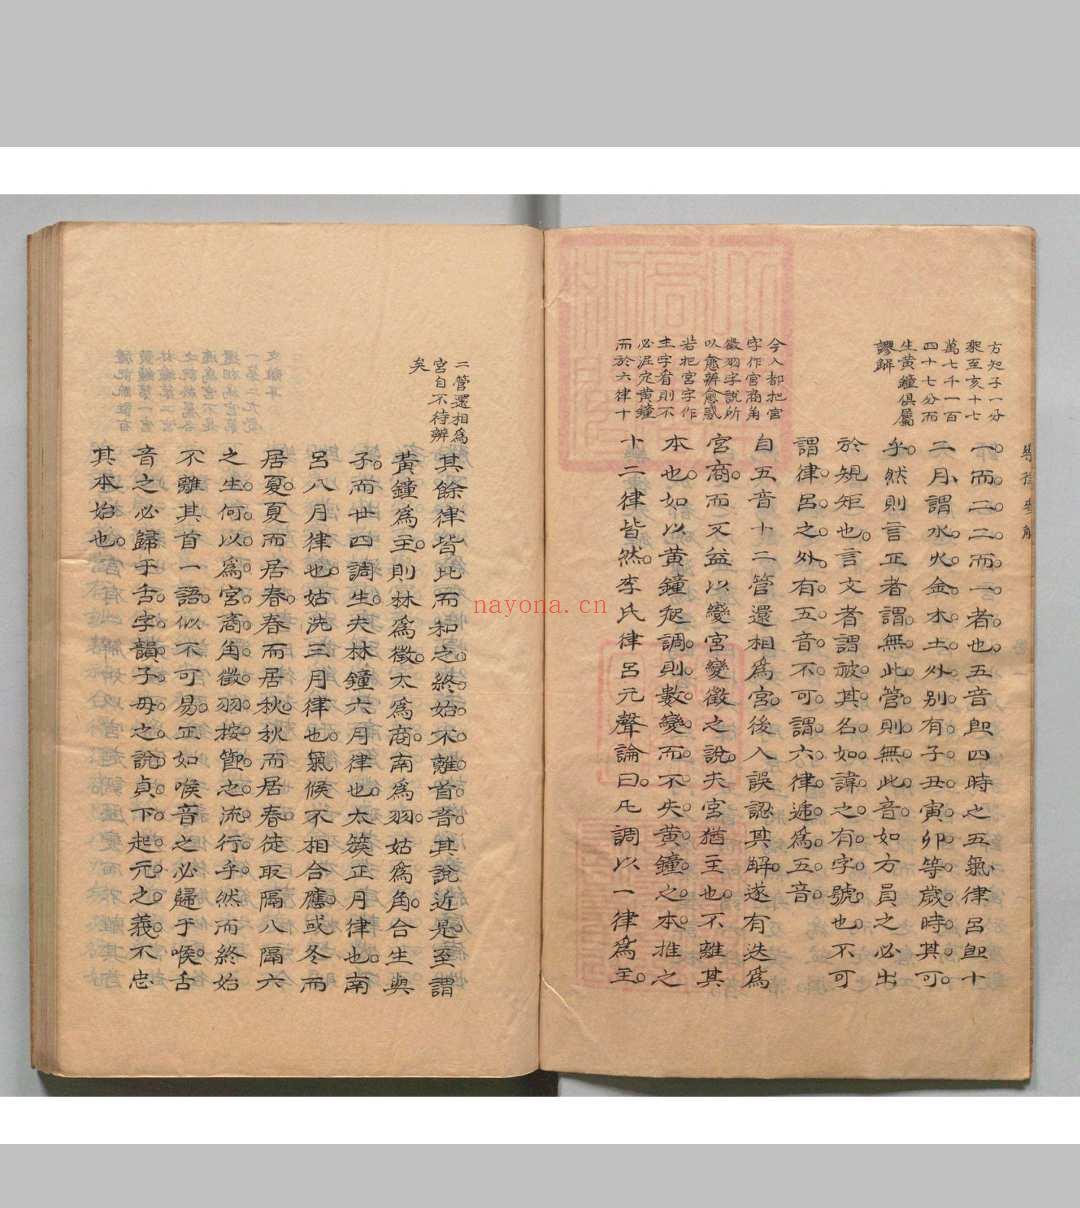 方知子一分
聚至亥十七
萬七千一百
四十七分而
生黃鐘俱屬
謬解
一而二二而一者也五音卽四時之五氣律呂卽十
二月謂水火金木土外别有子丑寅卯等歲時其可
乎然則言正者謂無此管則無此音如方員之必出
於規矩也言文者謂被其名如諱之有字號也不可
謂律呂之外有五音不可謂六律遞為五音
今人都把宮
字作宮商角
徵羽字說所
以愈辨愈惑
若把宮字作
主字看則不
必泥定黃鐘
而於六律十
自五音十二管還相為宮後人誤認其解遂有迭為
宮商而又益以變宮變徵之說夫宮猶主也不離其
本也如以黃鐘起調則數變而不失黃鐘之本推之
十二律皆然李氏律呂元聲論曰凡調以一律為主
二管還相為
宮自不待辨
矣
其餘律皆比而和之終始不離首音其說近是至謂
黃鐘為主則林為徵太為商南為羽姑為角合生與
子而廿四調生夫林鐘六月律也太簇正月律也南
呂八月律也姑洗三月律也氣候不相合應或冬而
居夏夏而居春春而居秋秋而居春徒取隔八隔六
之生何以為宮商角徵羽按節之流行乎然而終始
不離其首一語似不可易正如喉音之必歸于喉舌
音之必歸于舌字韻子母之說貞下起元之義不忠
其本始也
nayona.cn